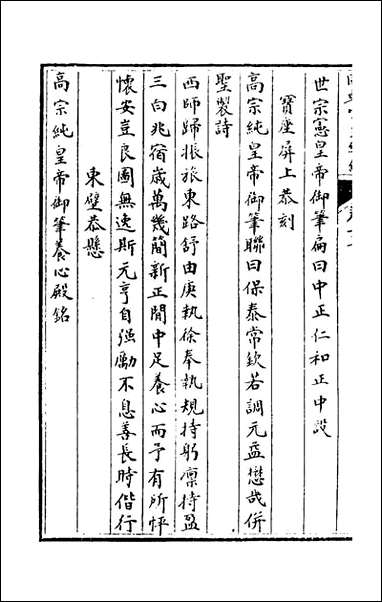 世宗憲皇帝御筆扁曰中正仁和正中設
寶座屏上恭刻
高宗純皇帝御筆聯曰保泰常欽若調元益懋哉併
聖製詩
西師歸振旅東路舒由庚執徐奉執規持躬凛持盈
三白兆宿歲萬幾簡新正閒中足養心而予有所怦
懷安豈良圖無逸斯元亨自强勵不息善長時偕行
東壁恭懸
高宗純皇帝御筆養心殿銘